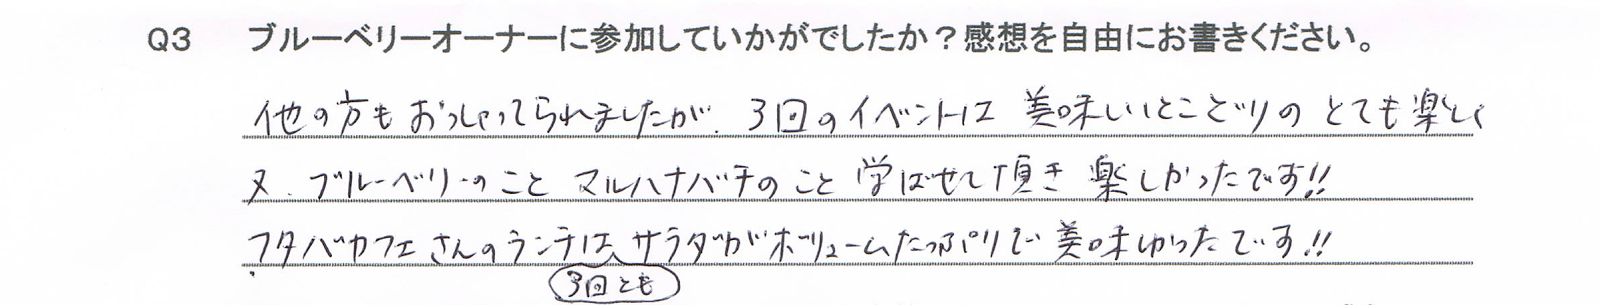 Q3 ブルーベリーオーナーに参加していかがでしたか？感想を自由にお書きください。
他の方もおっしゃってられましたが、3回のイベントは 美味しいとこどりの とても楽しく
又、ブルーベリーのこと マルハナバチのこと 学ばせて頂き 楽しかったです!!
フタバカフェさんのランチは、サラダがボリュームたっぷりで 美味しかったです!!
3回とも